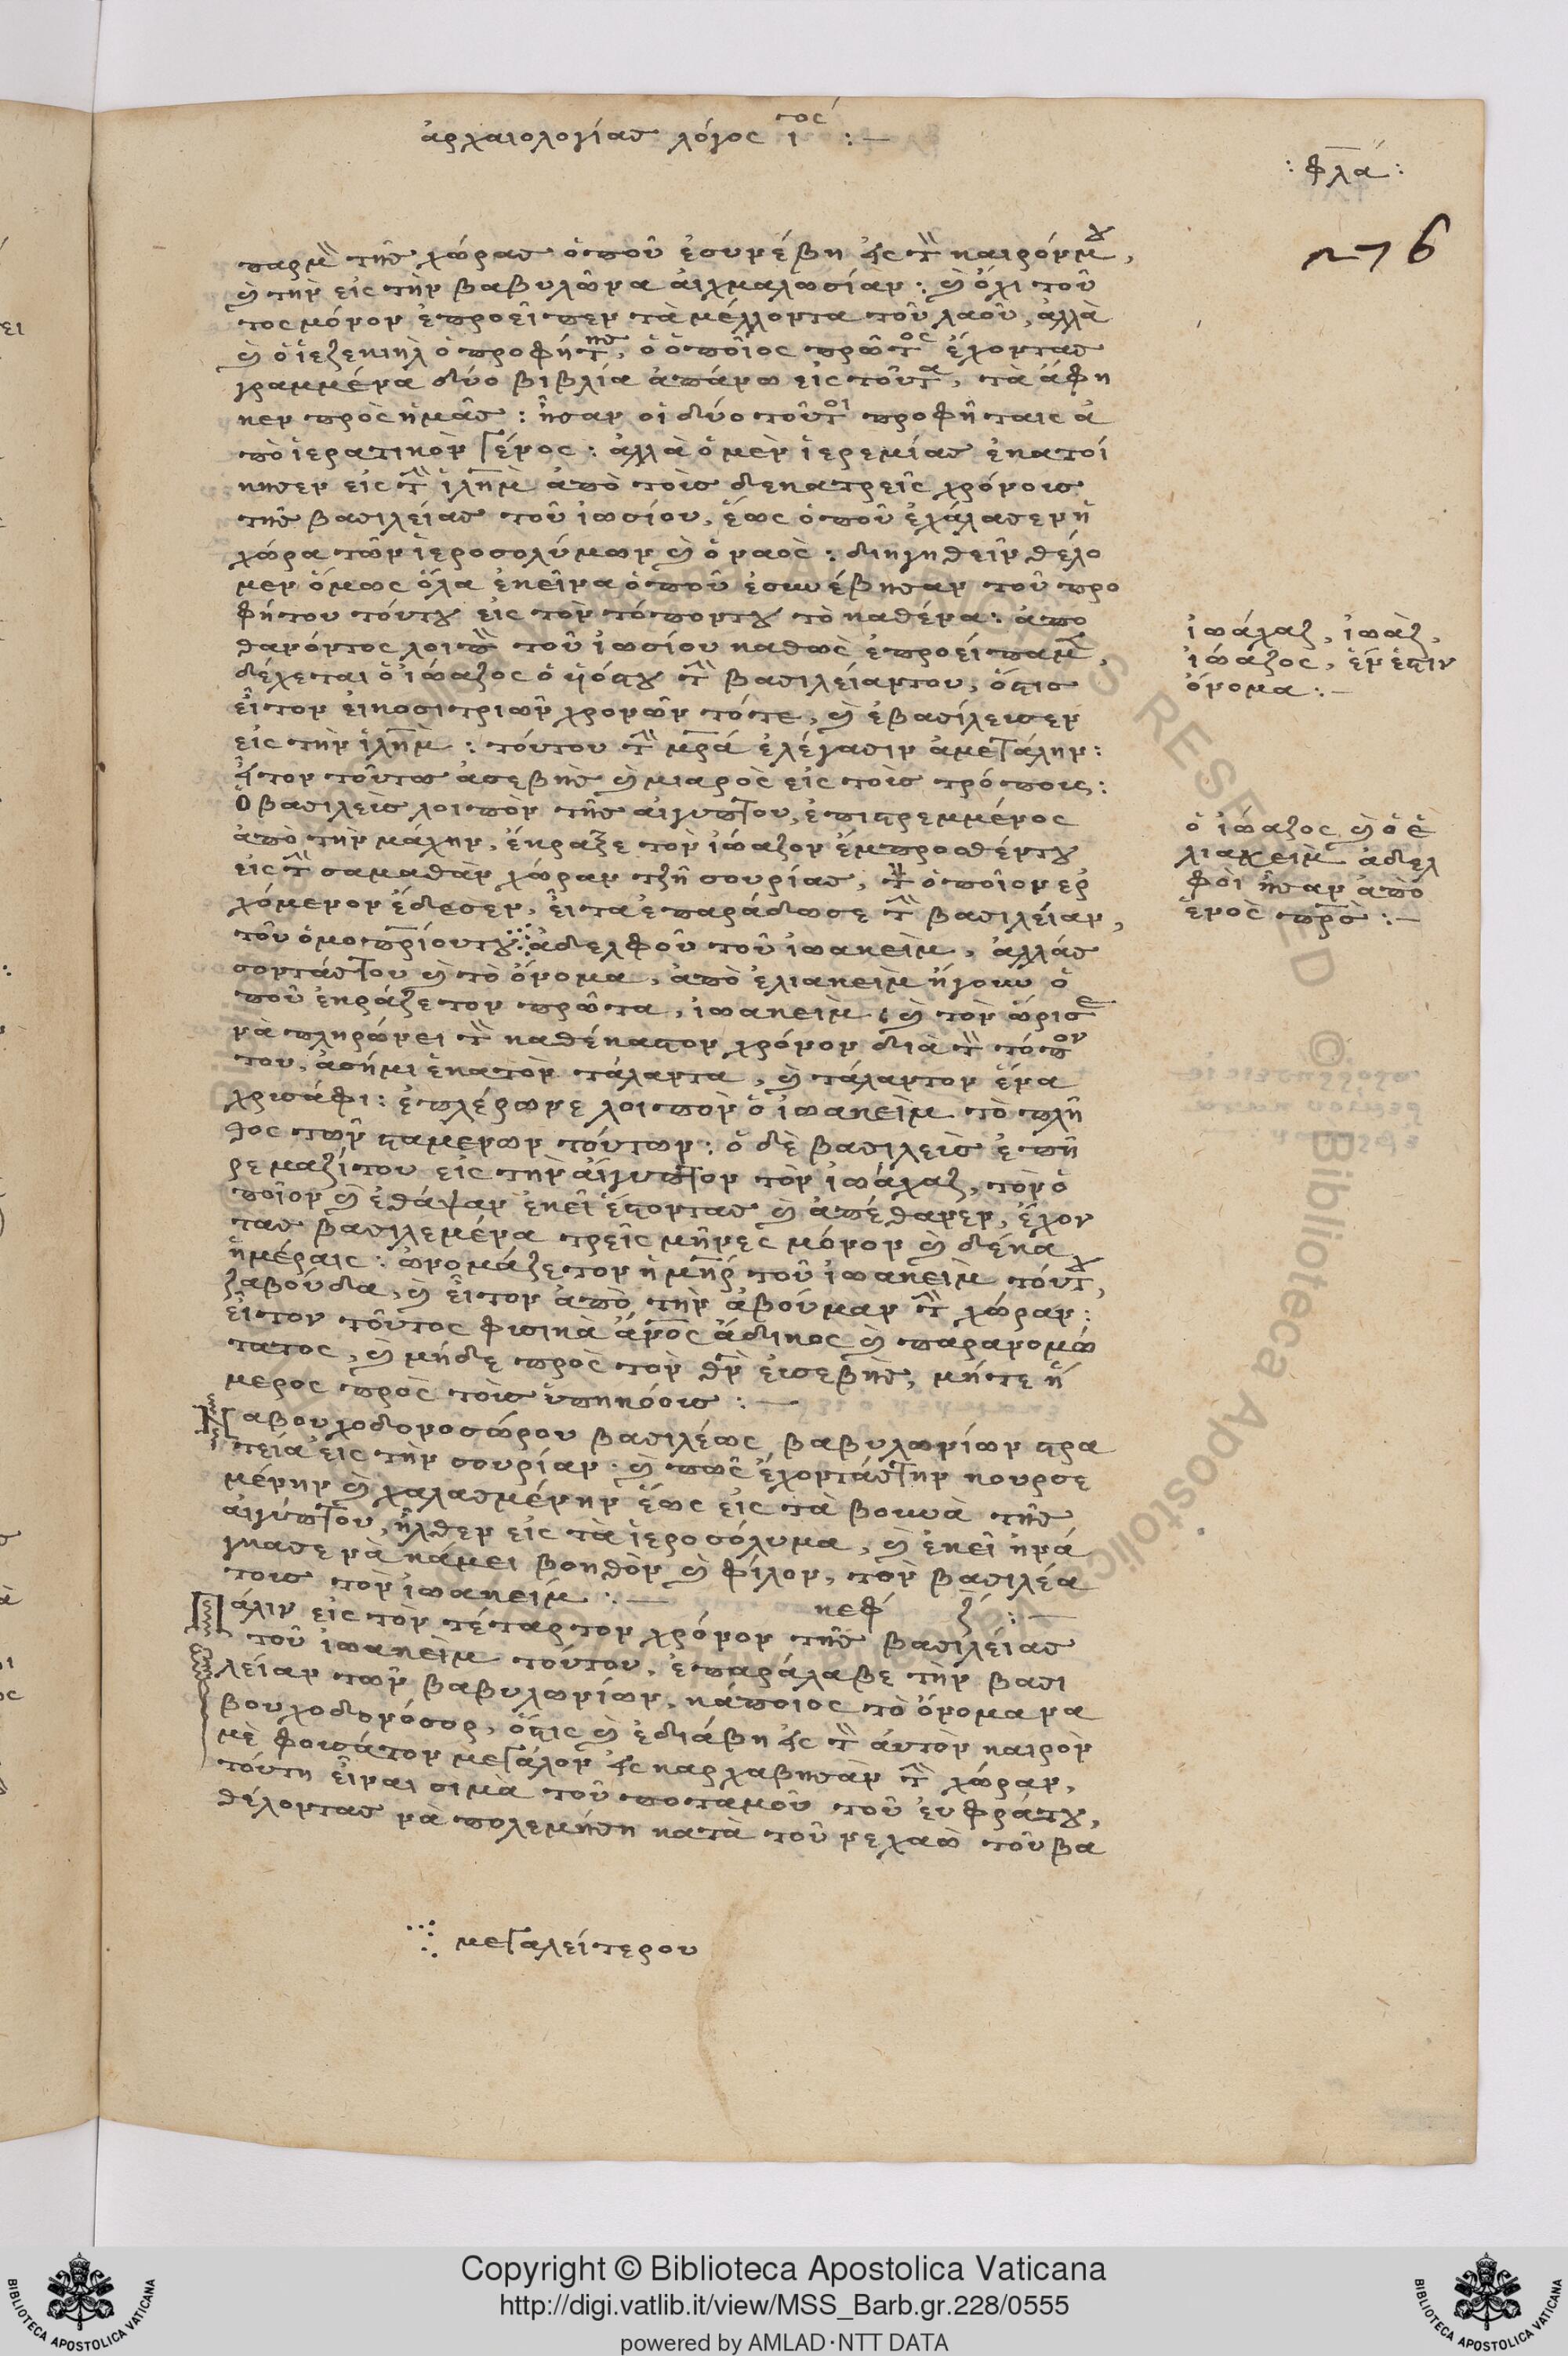 ἀρχαιολογίας λόγος ι τος :—
: φλά :
276
παρμ τῆς χώρας ὁποῦ ἐσυνέβη εἰς τ καιρόνμ,
ϗ τὴν εἰς τὴν βαβυλῶνα ἀιχμαλωσίαν : ϗ ὄχι τοῦ
τος μόνον ἐπροεῖπεν τὰ μέλλοντα τοῦ λαοῦ, ἀλλὰ
ϗ ὁ ἰεζεκιὴλ ὁ προφήτης, ὁ ὁποῖος πρῶτος ἔχοντας
γραμμένα δύο βιβλία ἀπάνω εἰς τοῦτα, τὰ ἄφη
κεν πρὸς ἡμᾶς : ἦσαν οἱ δύο τοῦτοι προφῆταις ἀ
πὸ ἱερατικὸν γένος : ἀλλὰ ὁ μὲν ἱερεμίας ἐκατοί
κησεν εἰς τ ἱλημ ἀπὸ τοὺς δεκατρεῖς χρόνους
τῆς βασιλείας τοῦ ἰωσίου, ἕως ὁποῦ ἐχάλασεν ἡ
χώρα τῶν ἱεροσολύμων ϗ ὁ ναὸς : διηγηθεῖν θέλο
μεν ὅμως ὅλα ἐκεῖνα ὁποῦ ἐσυνέβησαν τοῦ προ
φήτου τούτου εἰς τὸν τόπον του τὸ καθένα : ἀπο
θανόντος λοιπ τοῦ ἰωσίου καθὼς ἐπροείπαμ,
δέχεται ὁ ἰώαζος ὁ ὑιός του τ βασιλείαν του, ὅστις
εἶτον εἰκοσιτριῶν χρονῶν τότε, ϗ ἐβασίλευσεν
εἰς τὴν ἱλημ : τούτου τ μρά ἐλέγασιν ἀμεγάλην :
ἦτον τοῦτος ἀσεβὴς ϗ μιαρὸς εἰς τοὺς τρόπους :
Ὁ βασιλεὺς λοιπὸν τῆς αἰγύπτου, ἐπιστρεμμένος
ἀπὸ τὴν μάχην, ἔκραξε τὸν ἰώαζον ἔμπροσθέν του
εἰς τ σαμαθὰν χώραν τζῆ συρίας, τ ὁποῖον ἐρ
χόμενον ἔδεσεν, εἶτα ἐπαράδωσε τ βασιλείαν,
τοῦ ὁμοπρίου του ἀδελφοῦ τοῦ ἰωακεὶμ, ἀλλάσ
σοντάς του ϗ τὸ ὄνομα, ἀπὸ ἐλιακεὶμ ἤγουν ὁ
ποῦ ἐκράζετον πρῶτα, ἰωακεὶμ, ϗ τὸν ὥρισε
νὰ πληρώνει τ καθέκαστον χρόνον διὰ τ τόπον
του, ἀσήμι ἑκατὸν τάλαντα, ϗ τάλαντον ἕνα
χρυσάφι : ἐπλέρωνε λοιπὸν ὁ ἰωακεὶμ τὸ πλῆ
θος τῶν σταμενων τούτων : ὁ δὲ βασιλεὺς ἐπῆ
ρε μαζί του εἰς τὴν αἴγυπτον τὸν ἰωάχαζ, τὸν ὁ
ποῖον ϗ ἐθάψαν ἐκεῖ ἔστοντας ϗ ἀπέθανεν, ἔχον
τας βασιλεμένα τρεῖς μῆνες μόνον ϗ δέκα
ἡμέραις : ὠνομάζετον ἡ μηρ τοῦ ἰωακεὶμ τούτου,
ζαβούδα, ϗ εἶτον ἀπὸ τὴν ἀβούμαν τ χώραν :
εἶτον τοῦτος φυσικὰ ἀνος ἄδικος ϗ παρανομώ
τατος, ϗ μήδε πρὸς τὸν θν εὐσεβὴς, μήτε ἥ
μερος πρὸς τοὺς ὑπηκόους :—
Ναβουχοδονοσώρου βασιλέως βαβυλωνίων στρα
τεία εἰς τὴν συρίαν · ϗ πῶς ἔχοντάς την κουρσε
μένην ϗ χαλασμένην ἕως εἰς τὰ βουνὰ τῆς
αἰγύπτου, ἦλθεν εἰς τὰ ἱεροσόλυμα, ϗ ἐκεῖ ἠνά
γκασε νὰ κάμει βοηθὸν ϗ φίλον, τὸν βασιλέα
τους τὸν ἰωακείμ :— κεφ ζ :—
Πάλιν εἰς τὸν τέταρτον χρόνον τῆς βασιλείας
τοῦ ἰωακεὶμ τούτου, ἐπαράλαβε τὴν βασι
λείαν τῶν βαβυλωνίων, κάποιος τὸ ὄνομα να
βουχοδονόσορ, ὅστις ϗ ἐδιάβη εἰς τ ἀυτὸν καιρὸν
μὲ φουσάτον μεγάλον εἰς καρχαβησὰν τ χώραν,
τούτη εἶναι σιμὰ τοῦ ποταμοῦ τοῦ ἐυφράτου,
θέλοντας νὰ πολεμήση κατὰ τοῦ νεχαὼ τοῦ βα
μεγαλείτερου
ἰωάχαζ, ἰωάζ,
ἰώαζος, ἕν ἐστιν
ὄνομα :—
ὁ ἰώαζος ϗ ὁ ἐ
λιακεὶμ ἀδελ
φοὶ ἦσαν ἀπὸ
ἑνὸς πρσ :—
COPYRIGHT © Biblioteca Apostolica Vaticana
http://digi.vatlib.it/view/MSS_Barb.gr.228/0555
powered by AMLAD·NTT DATA
BIBLIOTECA APOSTOLICA VATICANA
BIBLIOTECA APOSTOLICA VATICANA